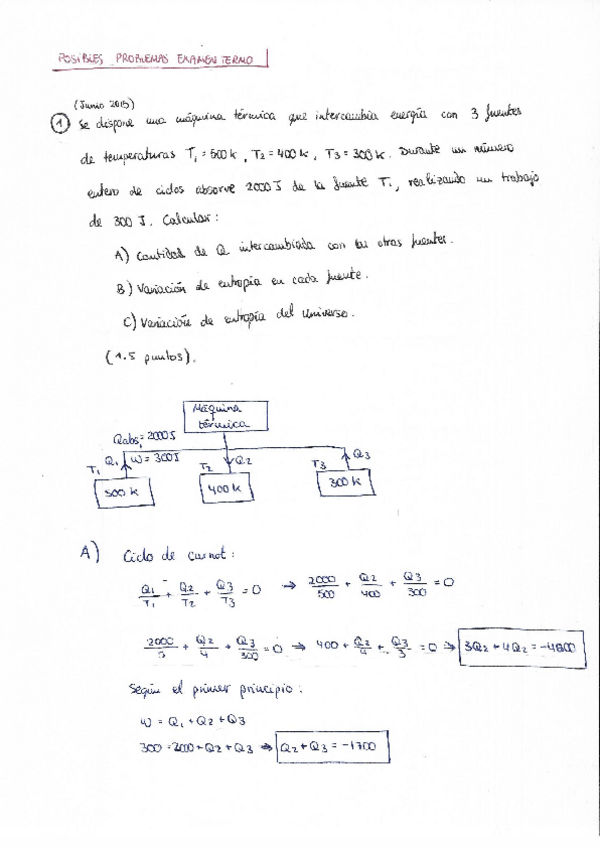 POSIBLES PROBLEMAS EXAMEN TERMO
(Junio 2015)
① Se dispone una máquina térmica que intercambia energía con 3 fuentes
de temperaturas T₁ = 500 k, T₂ = 400 k, T₃ = 300 k. Durante un número
entero de ciclos absorve 2000 J de la fuente T₁, realizando un trabajo
de 300 J. Calcular:
A) Cantidad de Q intercambiada con las otras fuentes.
B) Variación de entropía en cada fuente.
C) Variación de entropía del universo.
(1.5 puntos).
Máquina
térmica
Qabs₁ = 2000 J
Q₁ W = 300 J Q₂ Q₃
T₁ T₂ T₃
500 k 400 k 300 k
A) Ciclo de carnot:
Q₁/T₁ + Q₂/T₂ + Q₃/T₃ = 0 → 2000/500 + Q₂/400 + Q₃/300 = 0
2000/5 + Q₂/4 + Q₃/300 = 0 → 400 + Q₂/4 + Q₃/3 = 0 → 3Q₂ + 4Q₂ = -4800
Según el primer principio:
W = Q₁ + Q₂ + Q₃
300 = 2000 + Q₂ + Q₃ → Q₂ + Q₃ = -1700